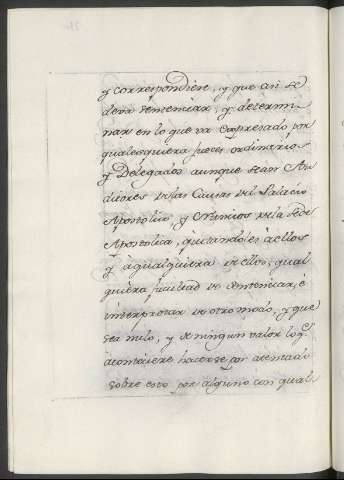 y correspondiere, y que asi se
deva sentenciar, y determi-
nar en lo que va expresado por
qualesquiera Jueces ordinarios
y Delegados aunque sean Au-
ditores de las Causas del Palacio
Apostolico, y Nuncios de la Sede
Apostolica, quitandoles à ellos
y à qualquiera de ellos, qual-
quiera facultad de sentenciar, è
interpretar de otro modo, y que
sea nulo, y de ningun valor lo q.e
aconteciere hacerse por atentado
sobre esto por alguno con qual-